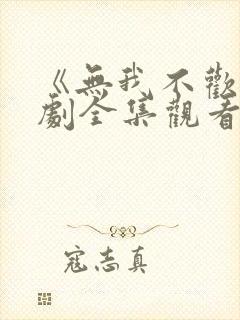 《無我不歡
劇全集觀看
寇志真